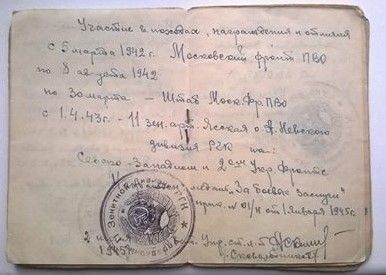 Участие в походах, награждения и отличия
с 5 марта 1942 г. Московский фронт ПВО
по 8 августа 1942
по 30 марта — Штаб Моск. Фр. ПВО
с 1.4.43 г. - 11 зен. арт. Ясская о. А. Невского
дивизия РГК на:
Северо-Западном и 2ом Укр. Фронте
медаль „За боевые заслуги"
прик. № 01/н от 1 января 1945 г.
2
1945
ст. л-т
Зенитной